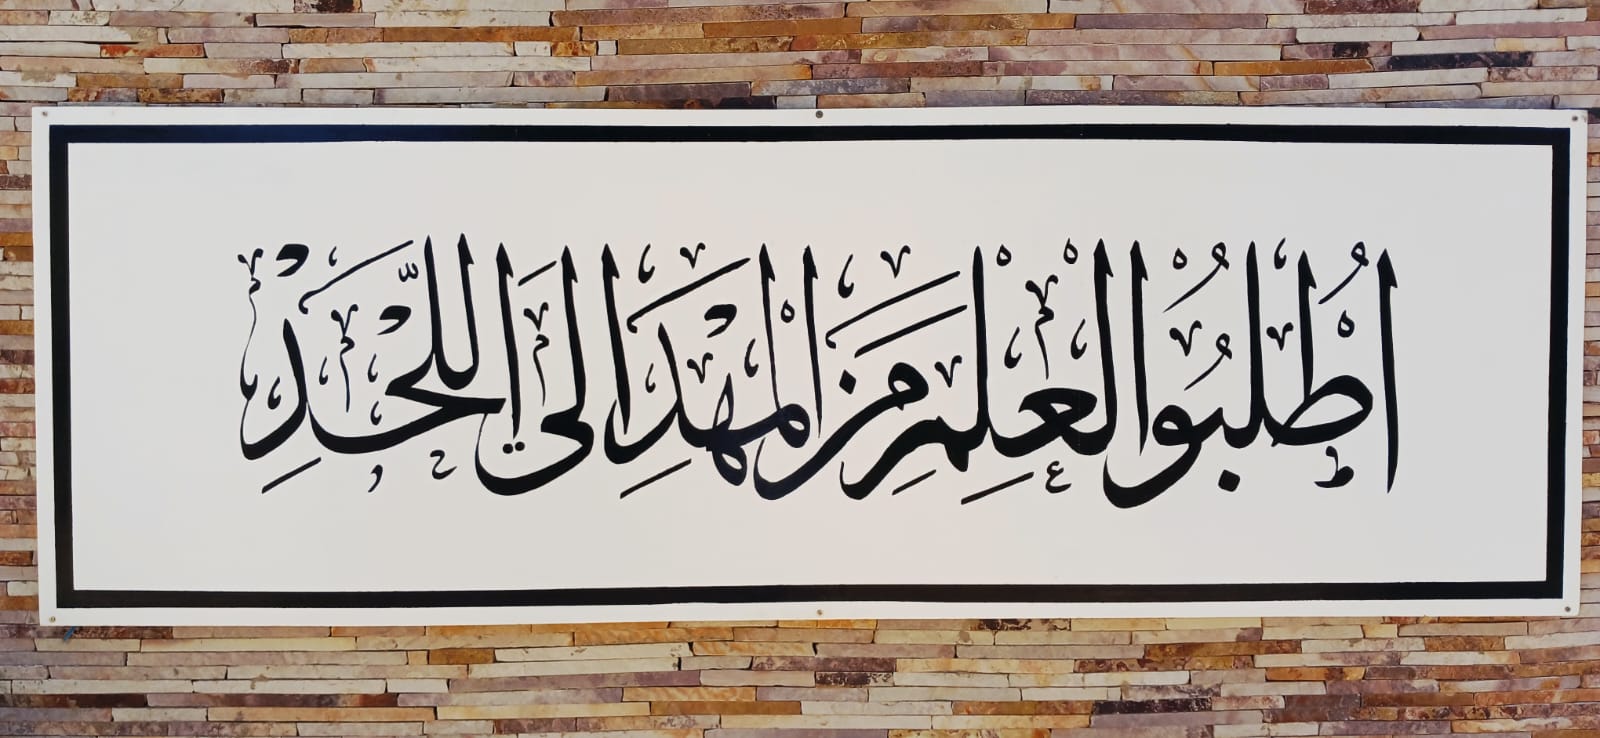 اُطْلُبُوا الْعِلْمَ مِنَ الْمَهْدِ اِلَى اللَّحْدِ